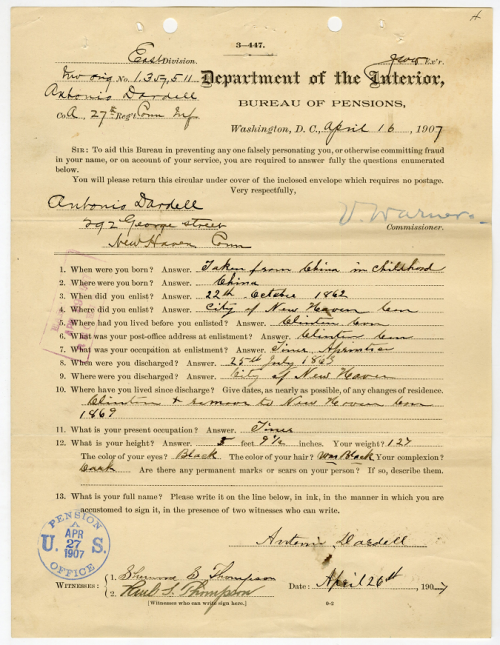 3—447.
East Division.
Inv orig No. 1.357,511
Department of the Interior,
Antonio Dardell
BUREAU OF PENSIONS,
Co. A, 27th Reg't Conn Inf
Washington, D. C., April 16, 1907
SIR: To aid this Bureau in preventing any one falsely personating you, or otherwise committing fraud
in your name, or on account of your service, you are required to answer fully the questions enumerated
below.
You will please return this circular under cover of the inclosed envelope which requires no postage.
Very respectfully,
Antonio Dardell
292 George street
New Haven Conn
V. Warner
Commissioner.
1. When were you born? Answer. Taken from China in childhood
2. Where were you born? Answer. China
3. When did you enlist? Answer. 22th Octobre 1862
4. Where did you enlist? Answer. City of New Haven Con
5. Where had you lived before you enlisted? Answer. Clinton Con
6. What was your post-office address at enlistment? Answer. Clinton Con
7. What was your occupation at enlistment? Answer. Tiner,
8. When were you discharged? Answer. July 1863
9. Where were you discharged? Answer. City of New Haven
10. Where have you lived since discharge? Give dates, as nearly as possible, of any changes of residence.
Clinton & to New Haven Con
1869
11. What is your present occupation? Answer. Tiner
12. What is your height? Answer. 5 feet 9½ inches. Your weight? 127
The color of your eyes? Black The color of your hair? Was Black Your complexion?
Dark Are there any permanent marks or scars on your person? If so, describe them.
13. What is your full name? Please write it on the line below, in ink, in the manner in which you are
accustomed to sign it, in the presence of two witnesses who can write.
Antonio Dardell
PENSION
A
APR
27
1907
U. S.
OFFICE
WITNESSES:
1. Sherwood S Thompson
2. S. Thompson
[Witnesses who can write sign here.]
Date: April 26th, 1907